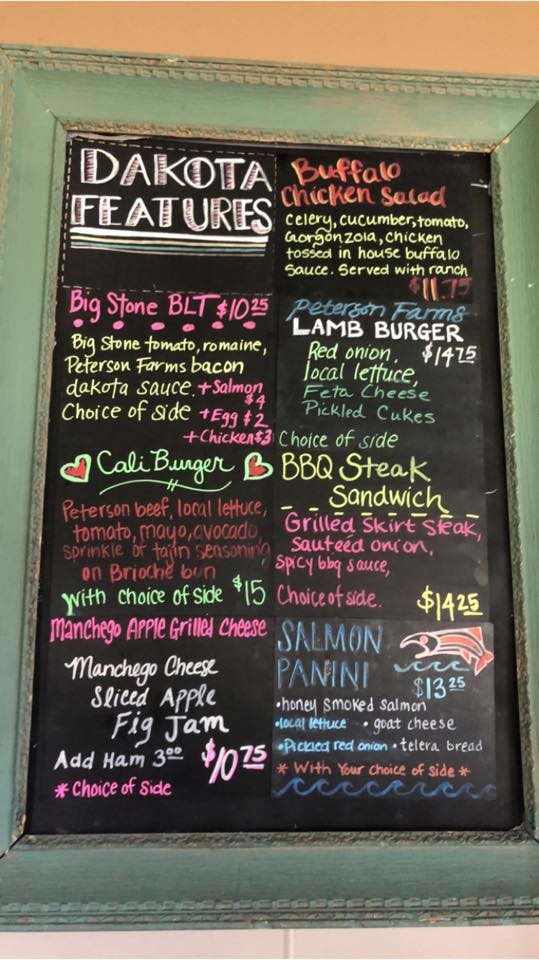 DAKOTA
FEATURES
Buffalo
Chicken Salad
celery, cucumber, tomato,
Gorgonzola, chicken
tossed in house buffalo
Sauce. Served with ranch
$11.75
Big Stone BLT $10.25
Big Stone tomato, romaine,
Peterson Farms bacon
dakota sauce. + Salmon
$4
Choice of side + Egg $2
+ Chicken $3
Peterson Farms
LAMB BURGER
Red onion, $14.75
local lettuce,
Feta Cheese
Pickled Cukes
Choice of side
Cali Burger
Peterson beef, local lettuce,
tomato, mayo, avocado,
sprinkle of tajin seasoning
on Brioche bun
with choice of side $15
BBQ Steak
Sandwich
Grilled Skirt Steak,
Sautéed onion,
Spicy bbq sauce,
Choice of side. $14.25
Manchego Apple Grilled Cheese
Manchego Cheese
Sliced Apple
Fig Jam
Add Ham 3.00 $10.75
* Choice of side
SALMON
PANINI
$13.25
• honey smoked salmon
• local lettuce • goat cheese
• Pickled red onion • telera bread
* With Your choice of side *